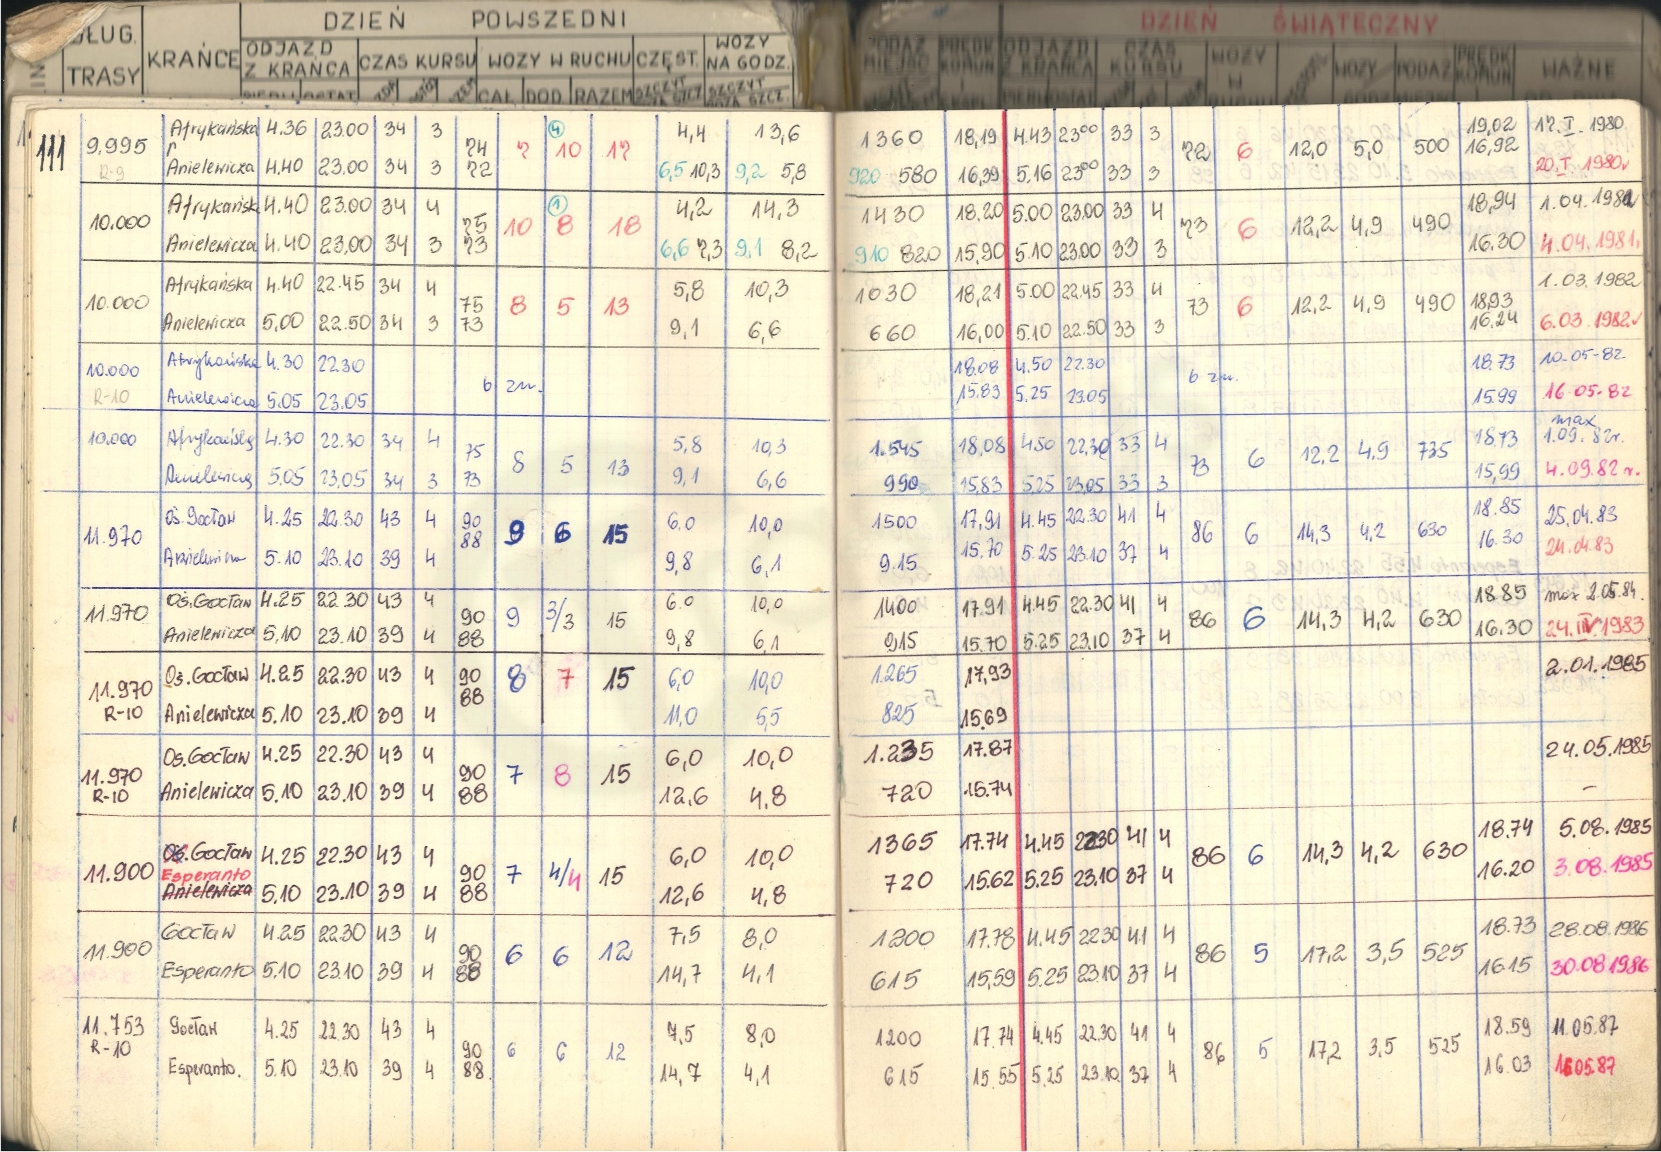 DZIEŃ POWSZEDNI DZIEŃ ŚWIĄTECZNY
DŁUG. TRASY KRAŃCE ODJAZD Z KRAŃCA CZAS KURSU WOZY W RUCHU CZĘST. WOZY NA GODZ. PODAŻ MIEJSC PRĘDK KOMUN. ODJAZD Z KRAŃCA CZAS KURSU WOZY W WOZY PODAŻ PRĘDK KOMUN. WAŻNE
CAŁ. DOD. RAZEM SZCZYT SZCZYT
111 9.995 Afrykańska 4.36 23.00 34 3 74 7 (4) 10 17 4,4 13,6 1360 18,19 4.43 23⁰⁰ 33 3 72 6 12,0 5,0 500 19,02 17.I.1980
R-9 Anielewicza 4.40 23.00 34 3 72 6,5 10,3 9,2 5,8 920 580 16,39 5.16 23⁰⁰ 33 3 16,92 20.I.1980
10.000 Afrykańsk 4.40 23.00 34 4 75 10 (1) 8 18 4,2 14,3 1430 18,20 5.00 23.00 33 4 73 6 12,2 4,9 490 18,94 1.04.1981
Anielewicza 4.40 23,00 34 3 73 6,6 7,3 9,1 8,2 910 820 15,90 5.10 23.00 33 3 16.30 4.04.1981,
10.000 Afrykańska 4.40 22.45 34 4 75 8 5 13 5,8 10,3 1030 18,21 5.00 22.45 33 4 73 6 12,2 4,9 490 18,93 1.03.1982
Anielewicza 5,00 22.50 34 3 73 9,1 6,6 660 16,00 5.10 22.50 33 3 16,24 6.03.1982
10.000 Afrykańska 4.30 22.30 b zm. 18.08 4.50 22.30 b zm. 18.73 10-05-82
R-10 Anielewicza 5.05 23.05 15.83 5.25 23.05 15.99 16-05-82
10.000 Afrykańską 4.30 22.30 34 4 75 8 5 13 5,8 10,3 1.545 18,08 4.50 22,30 33 4 73 6 12,2 4,9 735 18,73 max 1.09.82r.
Anielewiczą 5,05 23,05 34 3 73 9,1 6,6 990 15,83 5.25 23,05 33 3 15,99 4.09.82 r.
11.970 Oś. Gocław 4.25 22.30 43 4 90 9 6 15 6,0 10,0 1500 17,91 4.45 22.30 41 4 86 6 14,3 4,2 630 18.85 25.04.83
Anielewicza 5.10 23.10 39 4 88 9,8 6,1 9.15 15.70 5.25 23.10 37 4 16.30 24.04.83
11.970 Oś.Gocław 4.25 22.30 43 4 90 9 3/3 15 6.0 10,0 1400 17.91 4.45 22.30 41 4 86 6 14,3 4,2 630 18.85 max 2.05.84.
Anielewicza 5,10 23.10 39 4 88 9,8 6,1 915 15.70 5.25 23.10 37 4 16.30 24.IV.1983
11.970 Oś.Gocław 4.25 22.30 43 4 90 8 7 15 6,0 10,0 1.265 17,93 2.01.1985
R-10 Anielewicza 5.10 23.10 39 4 88 11,0 5,5 825 15.69
11.970 Oś.Gocław 4.25 22.30 43 4 90 7 8 15 6,0 10,0 1.235 17.87 24.05.1985
R-10 Anielewicza 5.10 23.10 39 4 88 12,6 4,8 720 15.74 –
11.900 Oś.Gocław 4.25 22.30 43 4 90 7 4/4 15 6,0 10,0 1365 17.74 4.45 22.30 41 4 86 6 14,3 4,2 630 18.74 5.08.1985
Esperanto
Anielewicza 5.10 23.10 39 4 88 12,6 4,8 720 15.62 5.25 23.10 37 4 16.20 3.08.1985
11.900 Gocław 4.25 22.30 43 4 90 6 6 12 7,5 8,0 1200 17.78 4.45 22.30 41 4 86 5 17,2 3,5 525 18.73 28.08.1986
Esperanto 5.10 23.10 39 4 88 14,7 4,1 615 15,59 5.25 23.10 37 4 16.15 30.08.1986
11.753 Gocław 4.25 22.30 43 4 90 6 6 12 7,5 8,0 1200 17.74 4.45 22.30 41 4 86 5 17,2 3,5 525 18.59 11.05.87
R-10 Esperanto. 5.10 23.10 39 4 88. 14,7 4,1 615 15.55 5,25 23.10 37 4 16.03 16.05.87